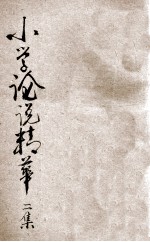 小学论说精华
二集